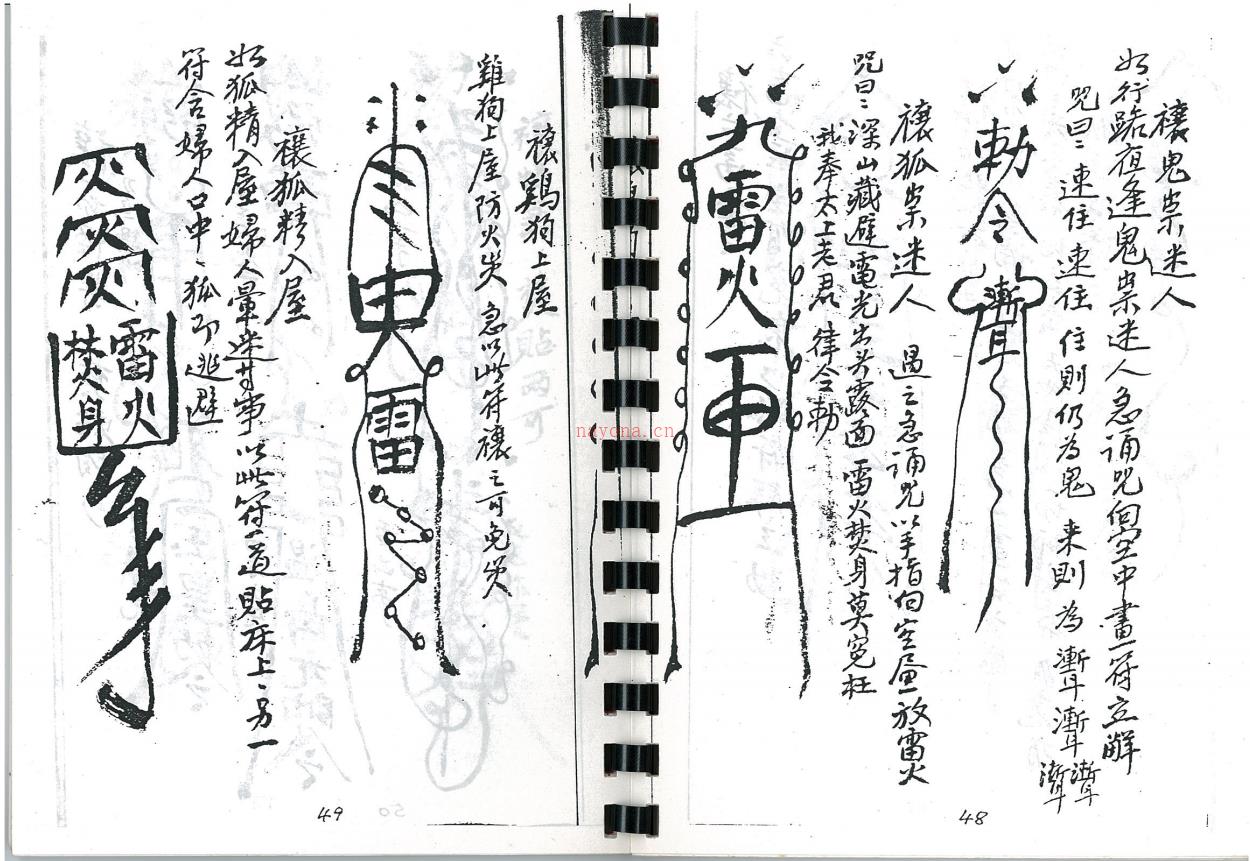 禳鬼祟迷人
如行路夜逢鬼祟迷人急誦咒向空中畫一符立解
咒曰：速住速住 住則仍為鬼 来則為魙魙
敕令
禳狐祟迷人 遇之急誦咒以手指向空虛放雷火
咒曰：深山藏避電光出头露面雷火焚身莫冤枉
我奉太上老君律令勅
九雷火
48
禳鷄狗上屋
雞狗上屋防火災 急以此符禳之可免災
雷
禳狐精入屋
如狐精入屋婦人暈迷苷事以此符一道貼床上、另一
符含婦人口中、狐即逃避
灾
灾
灾
雷火
焚身
49
nayona.cn